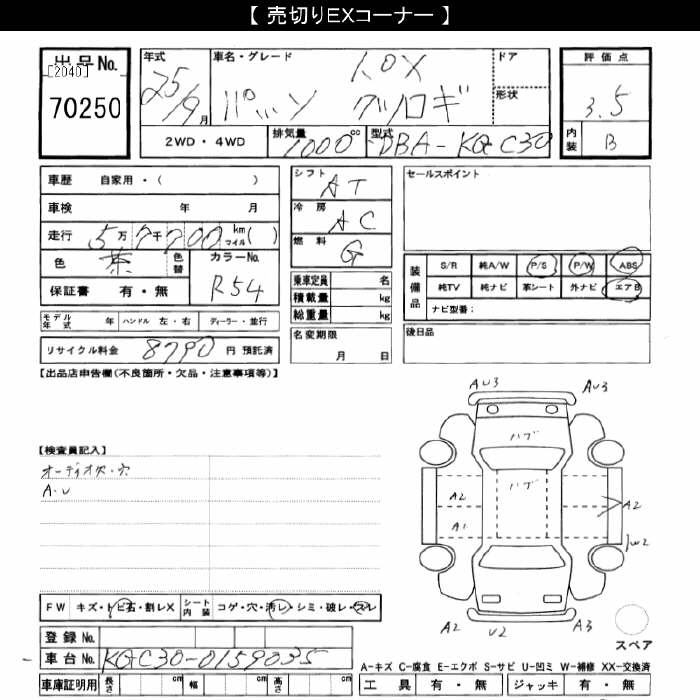 【 売切りEXコーナー 】
出品No.
[2040]
70250
年式
25/9月
車名・グレード
1.0X
パッソ クツロギ
ドア
形状
評価点
3.5
内装 B
2WD・4WD
排気量 1000 cc
型式 DBA-KGC30
車歴 自家用・( )
車検 年 月
走行 5万7千700 km マイル( )
色 茶 色替
カラーNo. R54
保証書 有・無
モデル年式 年 ハンドル 左・右 ディーラー・並行
リサイクル料金 8790 円 預託済
シフト AT
冷房 AC
燃料 G
乗車定員 名
積載量 kg
総重量 kg
名変期限
月 日
セールスポイント
装備品
S/R 純A/W P/S P/W ABS
純TV 純ナビ 革シート 外ナビ エアB
ナビ型番:
後日品
【出品店申告欄(不良箇所・欠品・注意事項等)】
【検査員記入】
オーディオ欠・穴
A.U
AU3 AU3
ハゲ
ハゲ
A2 A2
A1 W2
A2 U2 A3
スペア
FW キズ・トビ石・割レX シート内装 コゲ・穴・汚レ・シミ・破レ・スレ
登録No.
車台No. KGC30-0159035
A-キズ C-腐食 E-エクボ S-サビ U-凹ミ W-補修 XX-交換済
車庫証明用 長さ cm 幅 cm 高さ cm 工具 有・無 ジャッキ 有・無